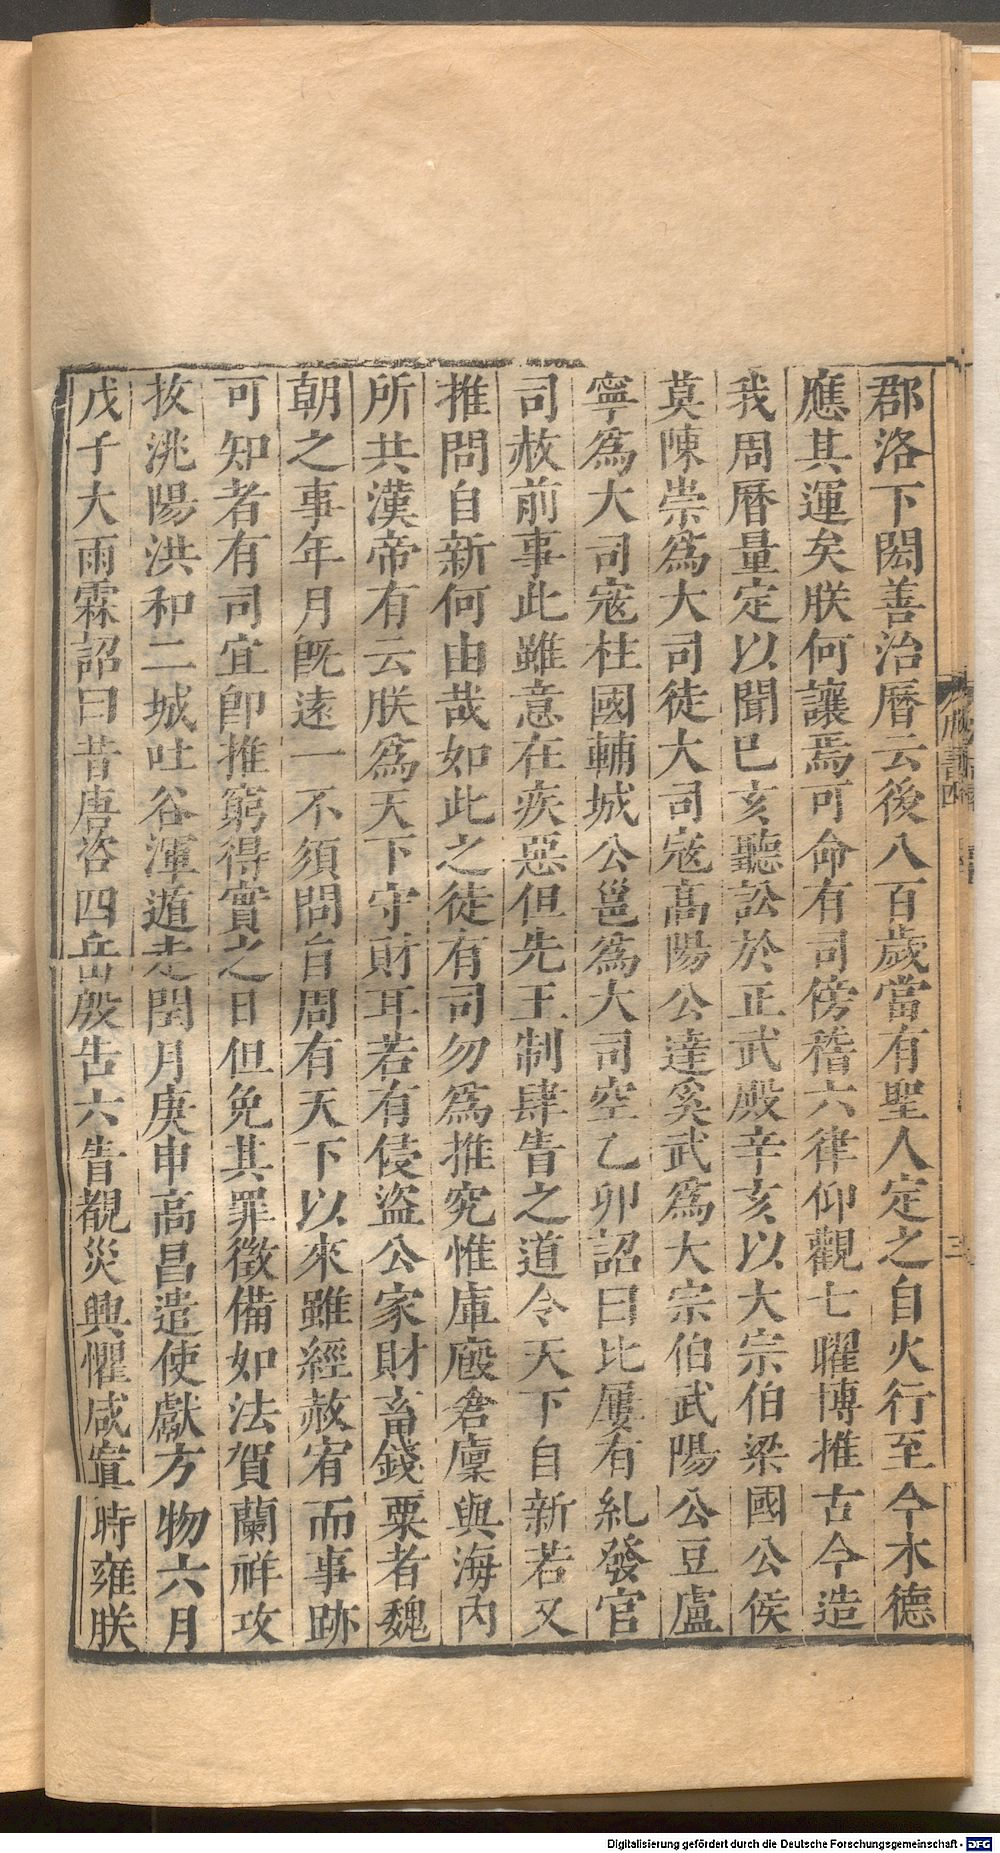 郡洛下閎善治曆云後八百歲當有聖人定之自火行至今木德
應其運矣朕何讓焉可命有司傍稽六律仰觀七曜博推古今造
我周曆量定以聞己亥聽訟於正武殿辛亥以大宗伯梁國公侯
莫陳崇爲大司徒大司寇高陽公達奚武爲大宗伯武陽公豆盧
寧爲大司寇柱國輔城公邕爲大司空乙卯詔曰比屢有糺發官
司赦前事此雖意在疾惡但先王制肆眚之道令天下自新若又
推問自新何由哉如此之徒有司勿爲推究惟庫廄倉廩與海內
所共漢帝有云朕爲天下守財耳若有侵盜公家財畜錢粟者魏
朝之事年月既遠一不須問自周有天下以來雖經赦宥而事跡
可知者有司宜卽推窮得實之日但免其罪徵備如法賀蘭祥攻
拔洮陽洪和二城吐谷渾遁走閏月庚申高昌遣使獻方物六月
戊子大雨霖詔曰昔唐咨四岳殷告六眚覩災興懼咸寘時雍朕
周書四
三
Digitalisierung gefördert durch die Deutsche Forschungsgemeinschaft - DFG